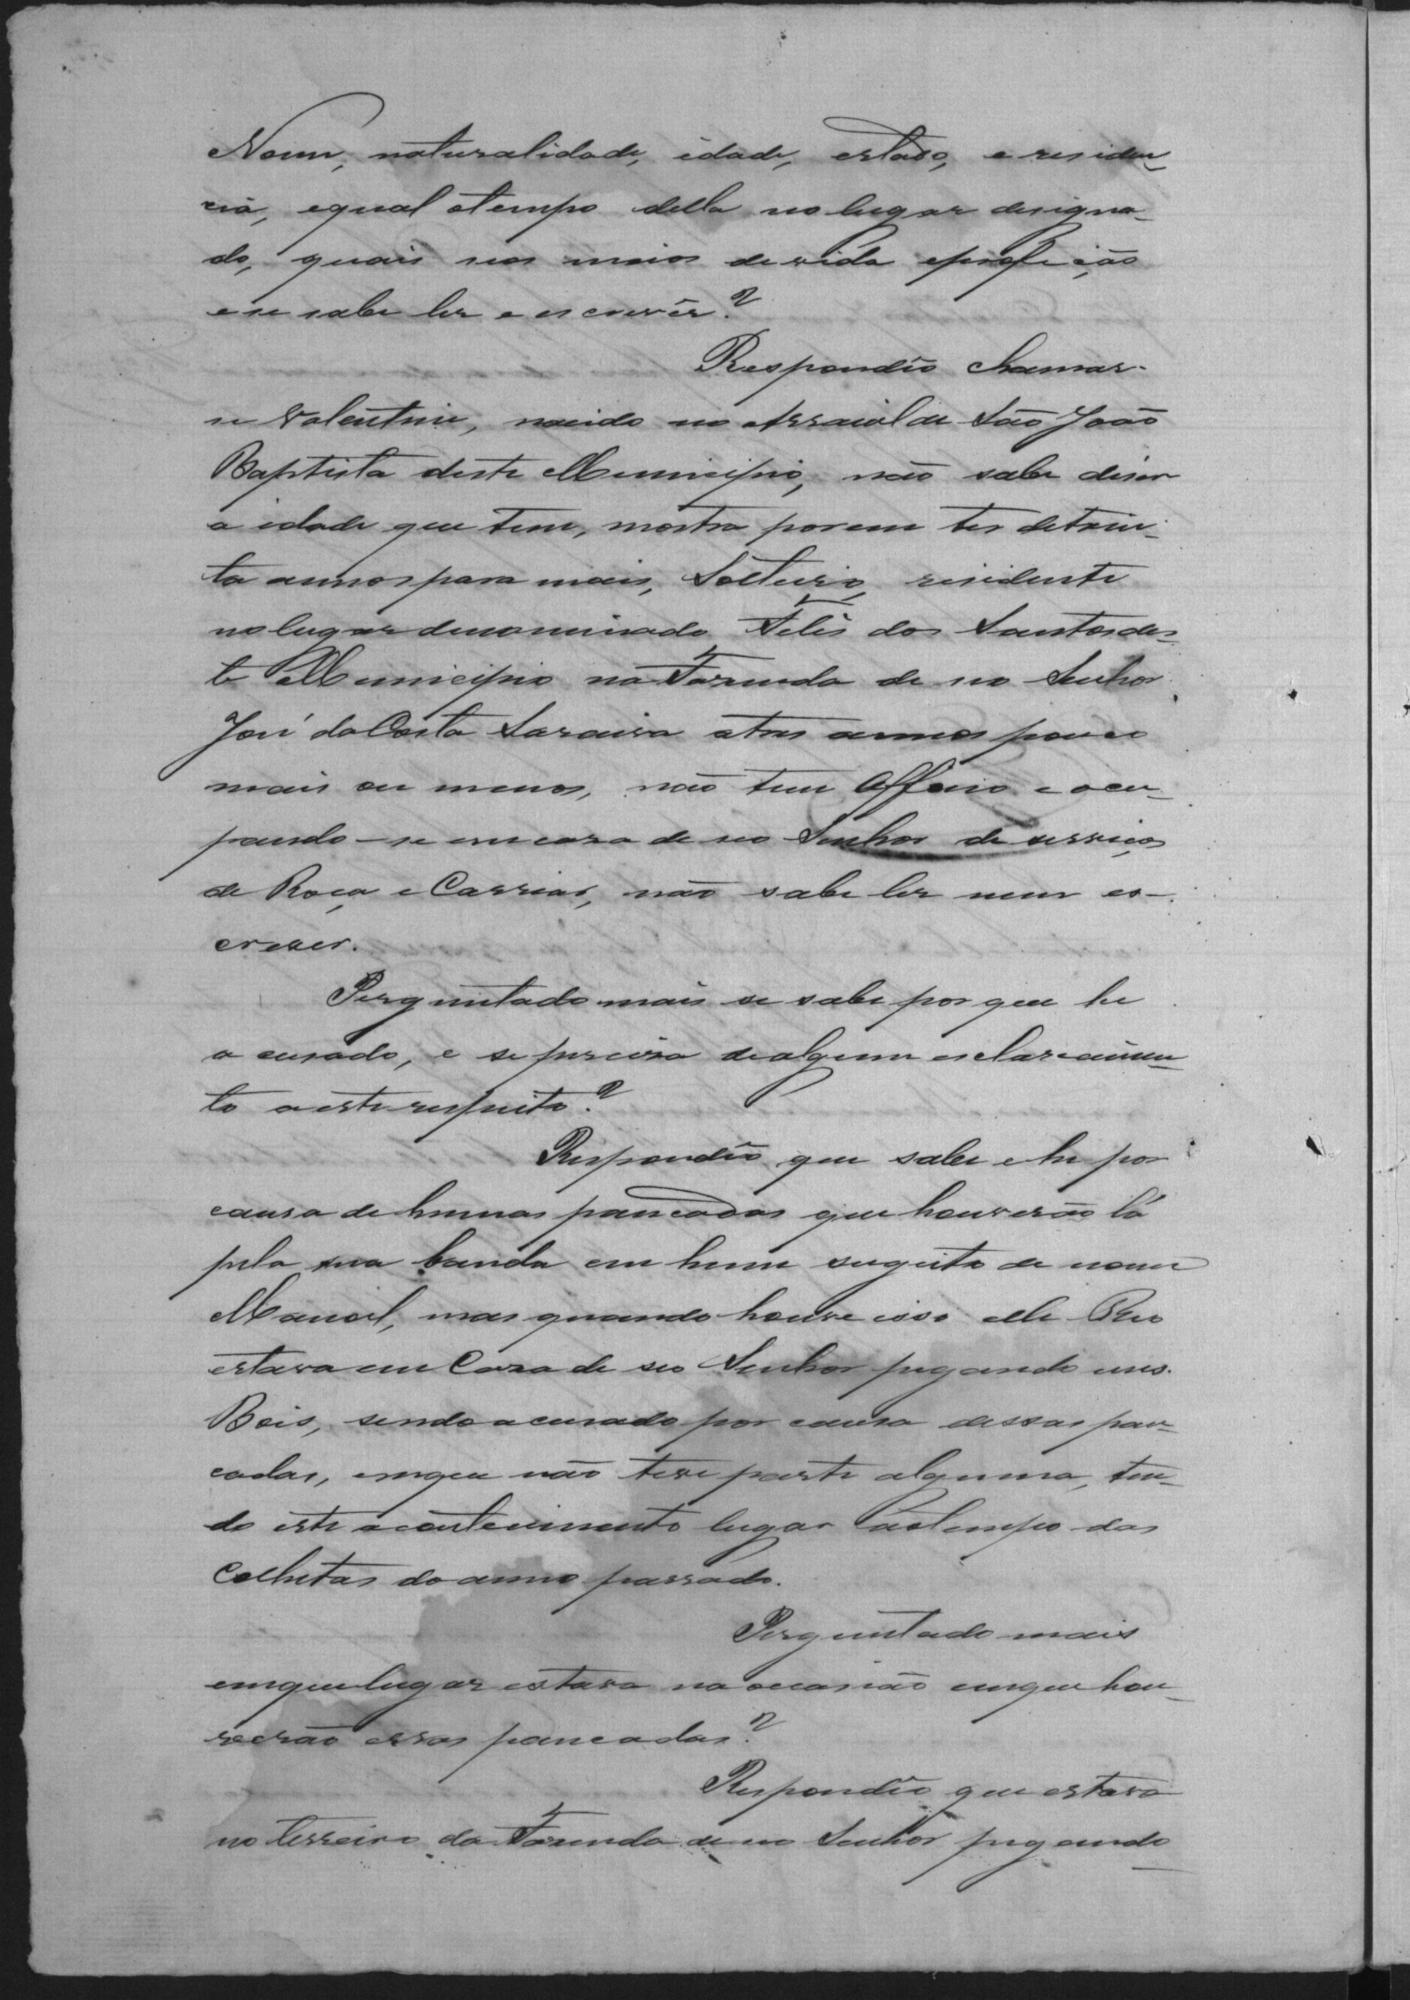 Nome, naturalidade, idade, estado, e residen-
cia, equal otempo della no lugar designa-
do, quais seos meios devida eprofição
e se sabe ler e escrevêr?
Respondêo chamar-
se Valentim, nacido no Arraial de São João
Baptista deste Municipio, não sabe diser
a idade que tem, mostra porem ter de trin-
ta annos para mais, Solteiro, residente
no lugar denominado Felis dos Santos des-
te Municipio na Fazenda de seo Senhor
José da Costa Saraiva a tres annos pouco
mais ou menos, não tem Officio e ocu-
pando-se em caza de seo Senhor de serviços
de Roça e Carriar, não sabe ler nem es-
crever.
Perguntado mais se sabe por que he
acusado, e se preciza de algum esclarecimen-
to a este respeito?
Respondêo que sabe e he por
causa de humas pancadas que houverão lá
pela sua banda em hum sugeito de nome
Manoel, mas quando houve isso elle Reo
estava em Caza de seo Senhor pegando uns
Bois, sendo acusado por causa dessas pan-
cadas, emque não teve parte alguma, ten-
do este acontecimento lugar aotempo das
Colheitas do anno passado.
Perguntado mais
emque lugar estava na occasião emque hou-
verão essas pancadas?
Respondêo que estava
no terreiro da Fazenda de seo Senhor pegando